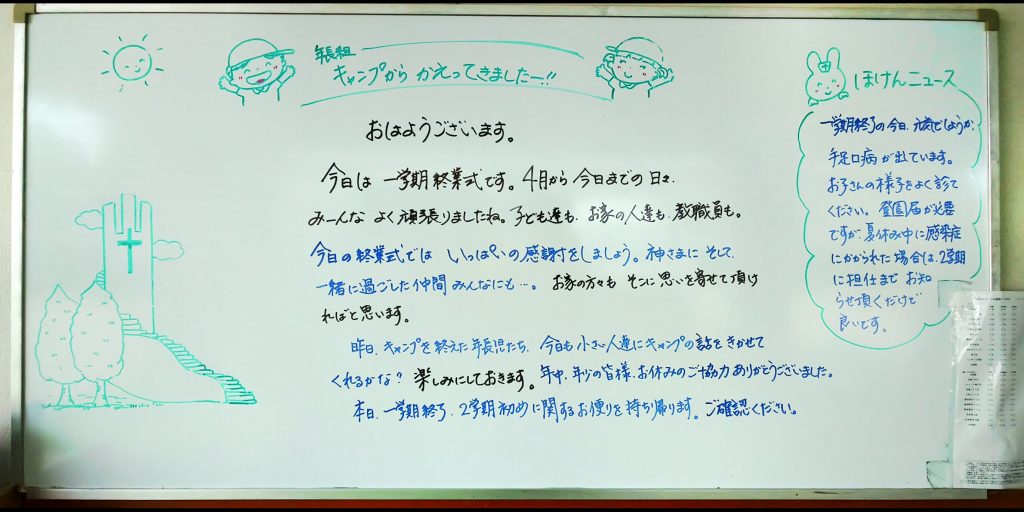 年長組
キャンプから かえってきましたー!!
おはようございます。
今日は 一学期終業式です。4月から 今日までの日々、
みーんな よく頑張りましたね。子ども達も、お家の人達も、教職員も。
今日の終業式では いっぱいの感謝をしましょう。神さまに そして、
一緒に過ごした仲間みんなにも…。 お家の方々も そこに思いを寄せて頂け
ればと思います。
昨日、キャンプを終えた年長児たち、今日も小さい人達にキャンプの話をきかせて
くれるかな? 楽しみにしておきます。年中、年少の皆様、お休みのご協力ありがとうございました。
本日、一学期終了、2学期初めに関するお便りを持ち帰ります。ご確認ください。
ほけんニュース
一学期終了の今日、元気でしょうか。
手足口病が出ています。
お子さんの様子をよく診て
ください。登園届が必要
ですが、夏休み中に感染症
にかかられた場合は、2学期
に担任まで お知
らせ頂くだけで
良いです。